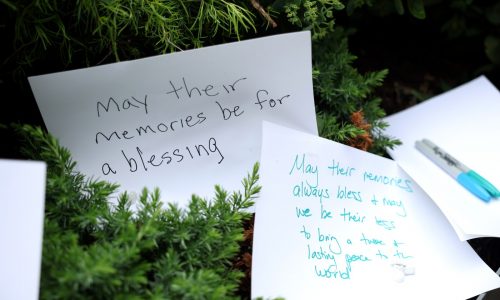 May their
memories be for
a blessing
May their memories
always bless & may
we be their
to bring a true &
lasting peace to th
world